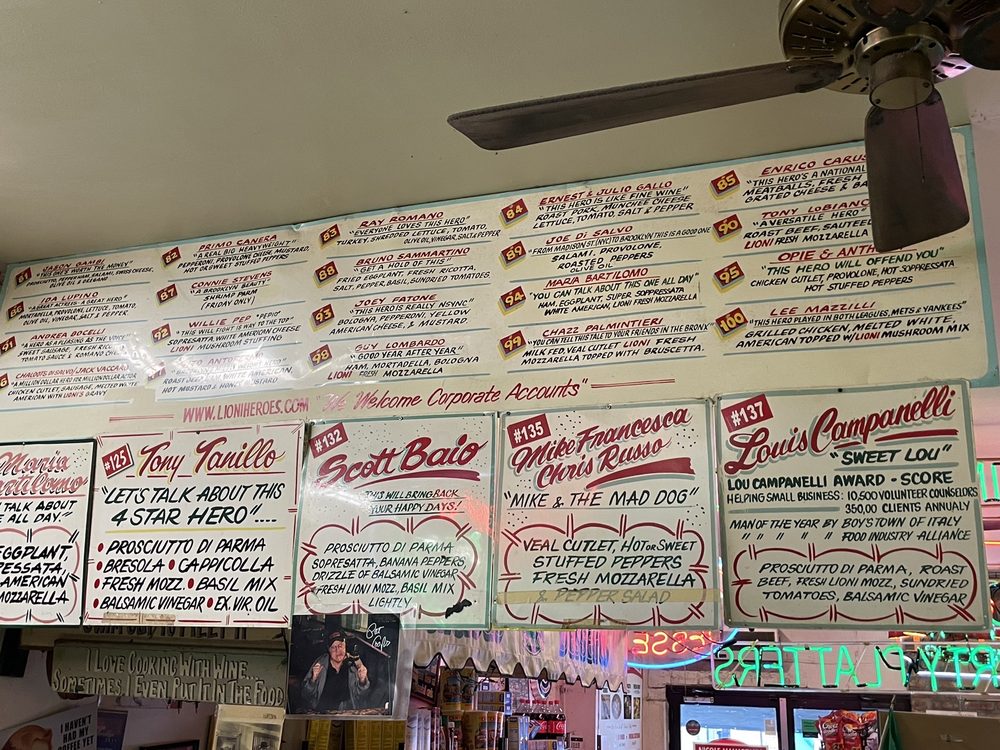 81 JASON GAMBI
82 PRIMO CANERA
"A REAL BIG HEAVYWEIGHT"
PEPPERONI, PROVOLONE CHEESE, MUSTARD,
HOT OR SWEET STUFFED PEPPERS
83 RAY ROMANO
"EVERYONE LOVES THIS HERO"
TURKEY, SHREDDED LETTUCE, TOMATO,
OLIVE OIL, VINEGAR, SALT & PEPPER
84 ERNEST & JULIO GALLO
"THIS HERO IS LIKE FINE WINE"
ROAST PORK, MUNCHEE CHEESE
LETTUCE, TOMATO, SALT & PEPPER
85 ENRICO CARUS
"THIS HERO'S A NATIONAL
MEATBALLS, FRESH
GRATED CHEESE & BA
86 IDA LUPINO
"A GREAT ACTRESS - A GREAT HERO"
MORTADELLA, PROVOLONE, LETTUCE, TOMATO,
OLIVE OIL, VINEGAR, SALT & PEPPER
87 CONNIE STEVENS
"A BROOKLYN BEAUTY"
SHRIMP PARM
(FRIDAY ONLY)
88 BRUNO SAMMARTINO
"GET A HOLD OF THIS"
FRIED EGGPLANT, FRESH RICOTTA,
SALT, PEPPER, BASIL, SUNDRIED TOMATOES
89 JOE DI SALVO
"FROM MADISON ST. (NYC) TO BROOKLYN THIS IS A GOOD ONE
SALAMI, PROVOLONE,
ROASTED PEPPERS
OLIVE OIL
90 TONY LOBIANC
"A VERSATILE HERO
ROAST BEEF, SAUTEE
LIONI FRESH MOZZARELLA
91 ANDREA BOCELLI
"A HERO AS PLEASING AS THE VOICE"
SWEET SAUSAGE, FRESH RICO
TOMATO SAUCE & ROMANO CH
92 WILLIE PEP "PEPIO"
"THIS WILL FIGHT IS WAY TO THE TOP"
SOPRESATTA, WHITE AMERICAN CHEESE
LIONI MUSHROOM STUFFING
93 JOEY FATONE
"THIS HERO'S REALLY NSYNC"
BOLOGNA, PEPPERONI, YELLOW
AMERICAN CHEESE, & MUSTARD.
94 MARIA BARTILOMO
"YOU CAN TALK ABOUT THIS ONE ALL DAY"
HAM, EGGPLANT, SUPER SOPPRESSATA
WHITE AMERICAN, LIONI FRESH MOZZARELLA
95 OPIE & ANTH
"THIS HERO WILL OFFEND YOU"
CHICKEN CUTLET, PROVOLONE, HOT SOPPRESSATA
HOT STUFFED PEPPERS
CHALOOTS DI SALVO/JACK VACCARO
A MILLION DOLLAR HERO FOR MILLION DOLLAR
CHICKEN CUTLET, SAUSAGE, MELTED WHITE
AMERICAN WITH LIONI'S GRAVY
HOT MUSTARD & MOZZARELLA
98 GUY LOMBARDO
"GOOD YEAR AFTER YEAR"
HAM, MORTADELLA, BOLOGNA
LIONI FRESH MOZZARELLA
99 CHAZZ PALMINTIERI
"YOU CAN TELL THIS TALE TO YOUR FRIENDS IN THE BRONX"
MILK FED VEAL CUTLET LIONI FRESH
MOZZARELLA TOPPED WITH BRUSCETTA.
100 LEE MAZZILLI
"THIS HERO PLAYED IN BOTH LEAGUES, METS & YANKEES"
GRILLED CHICKEN, MELTED WHITE,
AMERICAN TOPPED W/LIONI MUSHROOM MIX
WWW.LIONIHEROES.COM "We Welcome Corporate Accounts"
Maria
artilomo
TALK ABOUT
E ALL DAY."
EGGPLANT,
PESSATA,
AMERICAN
MOZZARELLA
#125 Tony Tanillo
"LET'S TALK ABOUT THIS
4 STAR HERO"....
• PROSCIUTTO DI PARMA
• BRESOLA • CAPPICOLLA
• FRESH MOZZ. • BASIL MIX
• BALSAMIC VINEGAR • EX. VIR. OIL
#132
Scott Baio
"THIS WILL BRING BACK
YOUR HAPPY DAYS!
PROSCIUTTO DI PARMA
SOPRESATTA, BANANA PEPPERS,
DRIZZLE OF BALSAMIC VINEGAR
FRESH LIONI MOZZ, BASIL MIX
LIGHTLY
#135 Mike Francesca
Chris Russo
"MIKE & THE MAD DOG"
VEAL CUTLET, HOT OR SWEET
STUFFED PEPPERS
FRESH MOZZARELLA
& PEPPER SALAD
#137
Louis Campanelli
"SWEET LOU"
LOU CAMPANELLI AWARD - SCORE
HELPING SMALL BUSINESS: 10,500 VOLUNTEER COUNSELORS
350,00 CLIENTS ANNUALY
MAN OF THE YEAR BY BOYS TOWN OF ITALY
" " " " " FOOD INDUSTRY ALLIANCE
PROSCIUTTO DI PARMA, ROAST
BEEF, FRESH LIONI MOZZ, SUNDRIED
TOMATOES, BALSAMIC VINEGAR
I LOVE COOKING WITH WINE.
SOMETIMES, I EVEN PUT IT IN THE FOOD
I HAVEN'T
HAD MY
COFFEE YET
ESSE
RTY PLATTERS